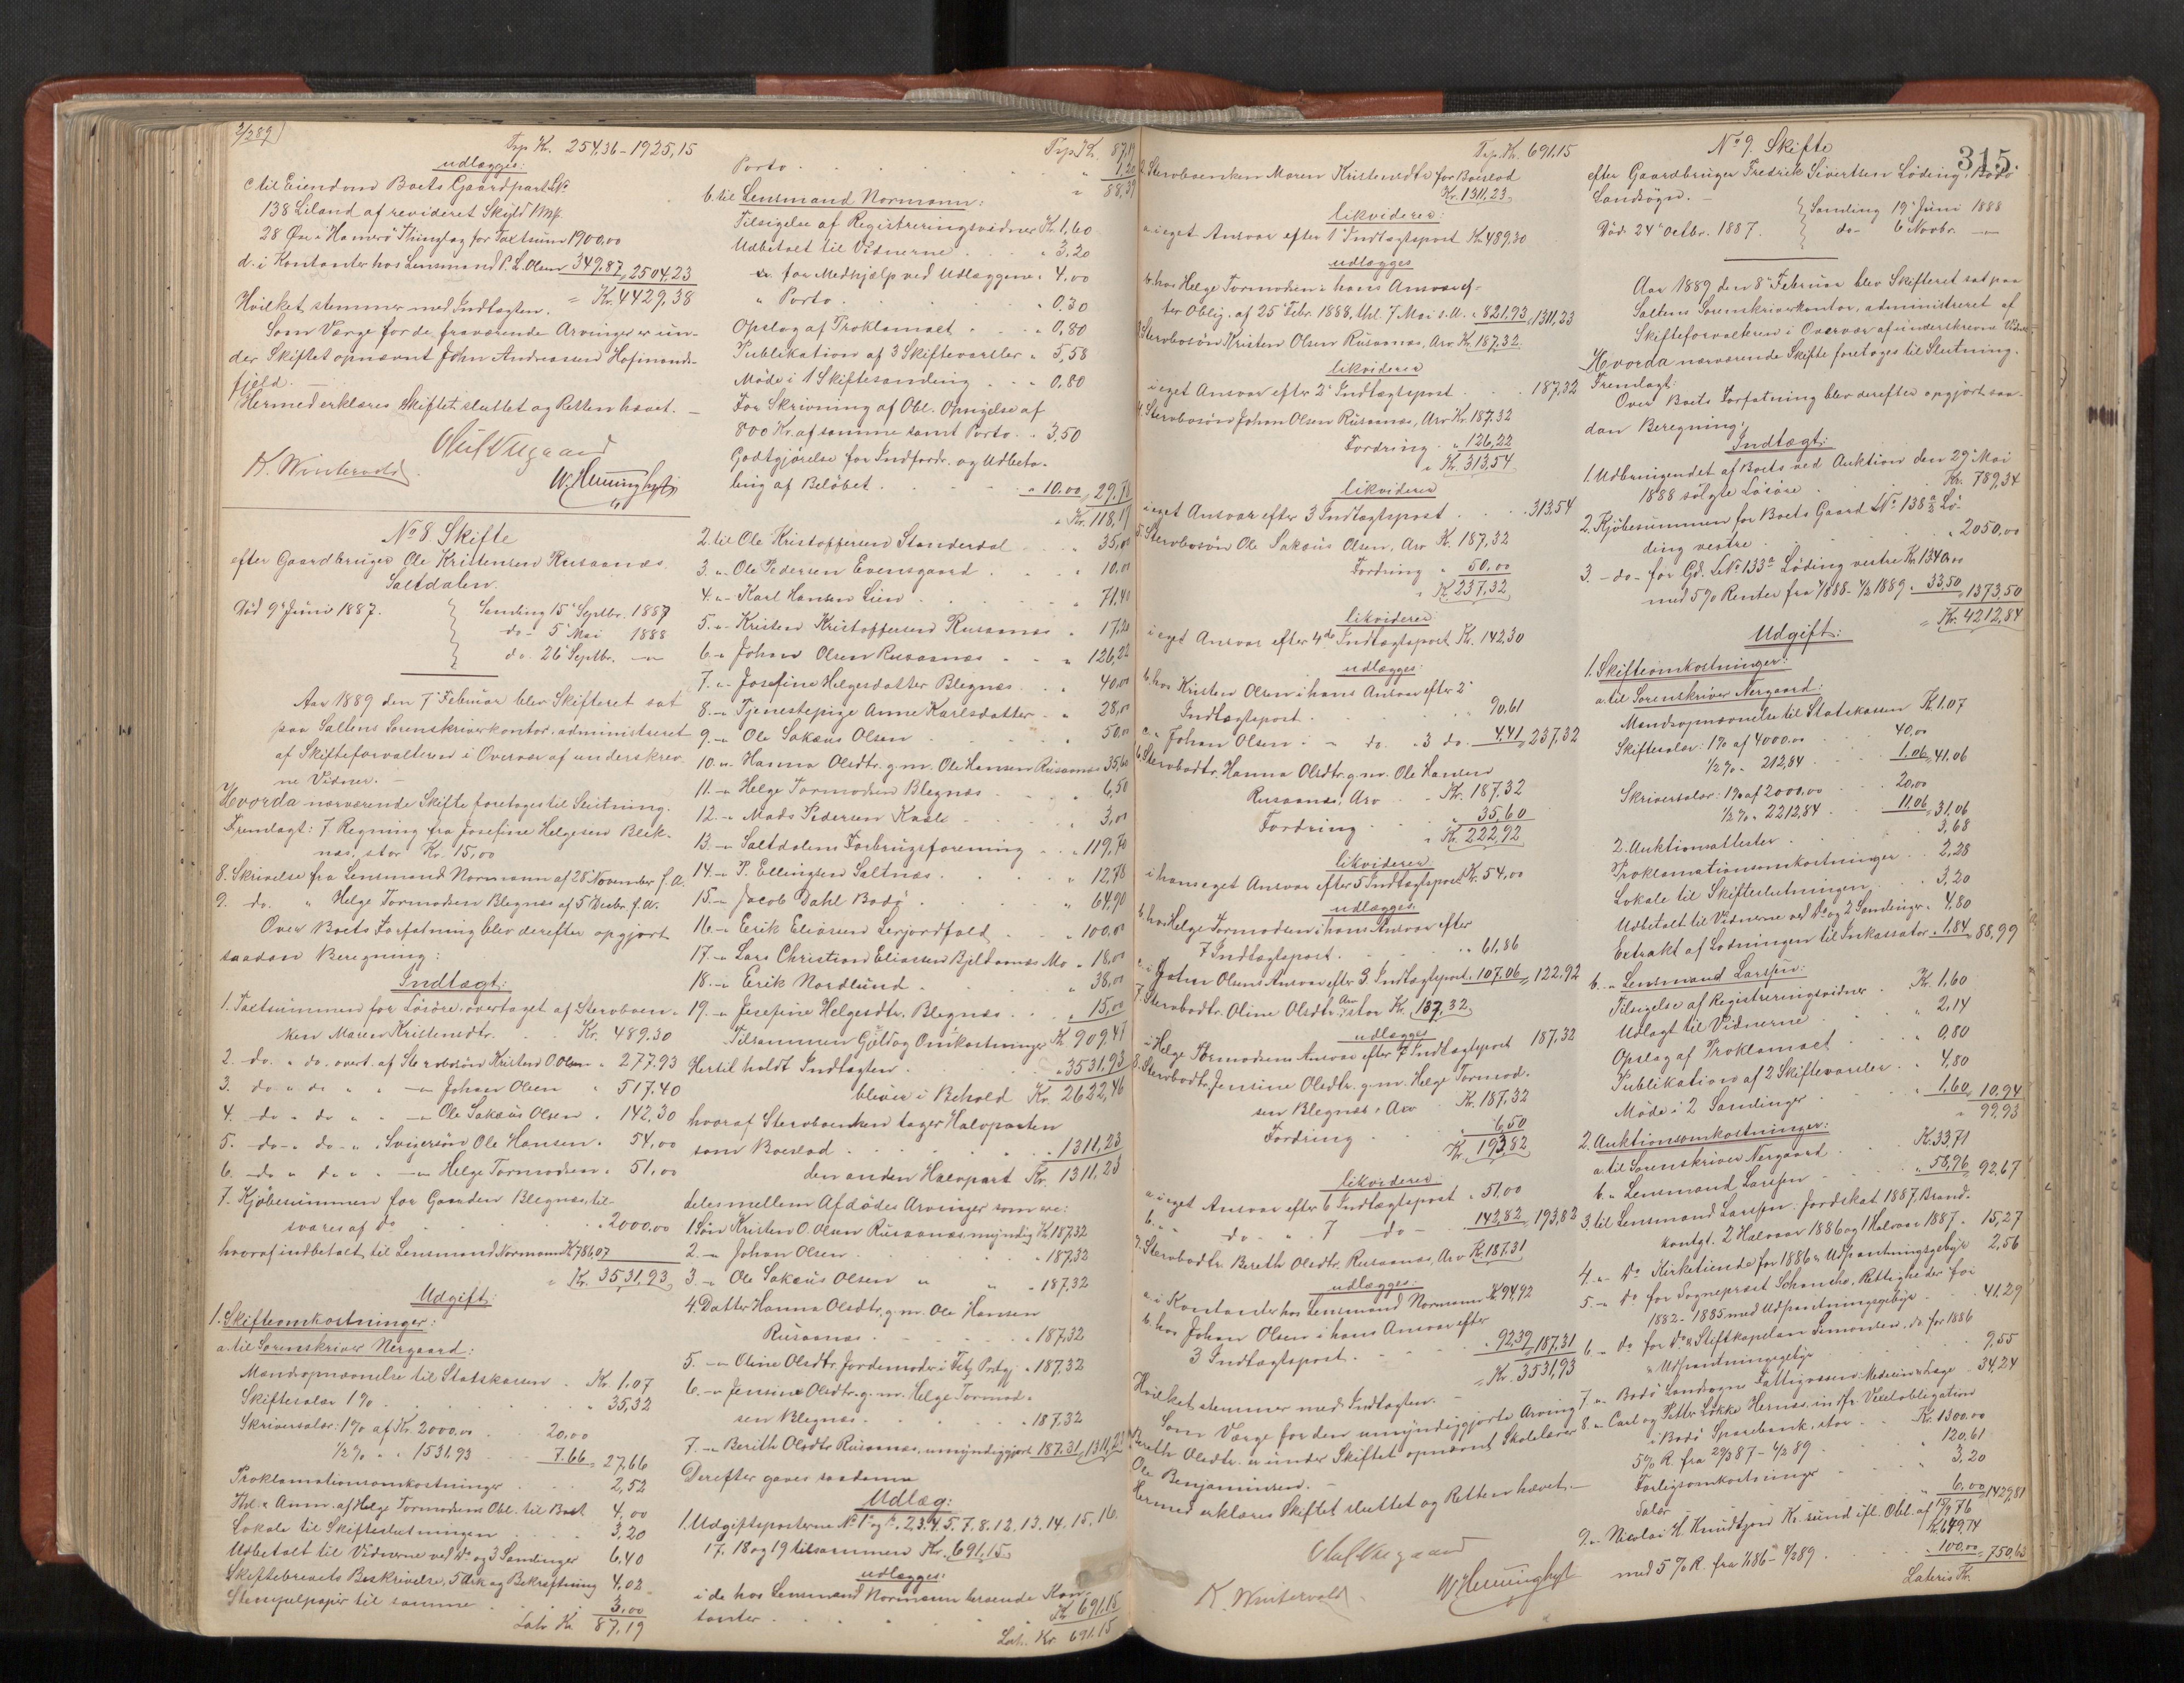 7/2 89
Trsp Kr. 254,36 - 1925,15
udlægges:
c til Eiendom Boets Gaardpart LNo
138 Liland af revideret Skyld 1 Mk
28 Øre i Hamerø Thinglag for Taxtsum 1900,00
d. i Kontanter hos Lensmand P. L. Olsen 349,87 " 2504,23
Hvilket stemmer med Indtægten. = Kr. 4429,38
Som Værge for de fraværende Arvinger er un-
der Skiftet opnævnt John Andreassen Hofmands-
fjeld. —
Hermed erklæres Skiftet sluttet og Retten hævet. —
Oluf Nergaard
K. Wintervold
W. Henninghystn
No 8. Skifte
efter Gaardbruger Ole Kristensen Rusaanæs
Saltdalen.
Død 9' Juni 1887. Samling 15' Septbr. 1887
do - 5' Mai 1888
do. 26' Septbr. —"—
Aar 1889 den 7' Februar blev Skifteret sat
paa Saltens Sorenskriverkontor, administreret
af Skifteforvalteren i Overvær af underskrev-
ne Vidner. —
Hvorda nærværende Skifte foretoges til Slutning.
Fremlagt: 7. Regning fra Josefine Helgesen Blek-
næs, stor Kr. 15,00
8. Skrivelse fra Lensmand Normann af 28' November f. A.
9. do. " Helge Tormodsen Blegnæs af 5 Decbr. f. A.
Over Boets Forfatning blev derefter opgjort
saadan Beregning:
Indtægt:
1. Taxtsummen for Løsøre, overtaget af Stervboen-
ken Maren Kristensdtr. . Kr. 489,30
2. do. " do. overt. af Stervbosøn Kristen O Olsen " 277.93
3. do " do " " —" Johan Olsen " 517.40
4. do " do " " —" Ole Sakæus Olsen " 142,30
5. do - " do - " " Svigersøn Ole Hansen " 54,00
6. do " do " " —" Helge Tormodsen " 51,00
7. Kjøbesummen for Gaarden Blegnæs, til-
svares af do . . . " 2000,00
hvoraf indbetalt til Lensmand Normann Kr 786,07
" Kr. 3531,93
Udgift:
1. Skifteomkostninger:
a. til Sorenskriver Nergaard:
Mandsopnævnelse til Statskassen . Kr. 1.07
Skiftesalær 1 % . . . " 35,32
Skriversalær: 1 % af Kr. 2000,00 . 20,00
1/2 % " " 1531,93 . . 7.66 = 27,66
Proklamationsomkostninger . . 2,52
Thl. " Anm. af Helge Tormodsens Obl. til Boet 4,00
Lokale til Skifteslutningen . . . 3,20
Udbetalt til Vidnerne ved do og 3 Samlinger 6,40
Skiftebrevets Beskrivelse, 5 Ark og Bekræftning 4,02
Stempelpapir til samme . . . 3,00
Lats Kr. 87,19
Trsp Kr. 87,19
Porto . . . . " 1,20
" 88,39
b. til Lensmand Normann:
Tilsigelse af Registreringsvidner Kr. 1,60
Udbetalt til Vidnerne . . " 3,20
do for Medhjælp ved Udlæggene " 4,00
" Porto . . . . " 0,30
Opslag af Proklamaet . . . " 0,80
Publikation af 3 Skiftevarsler " 5,58
Møde i 1 Skiftesamling . . " 0,80
For Skrivning af Obl. Opsigelse af
800 Kr. af samme samt Porto . " 3,50
Godtgjørelse for Indfordr. og Udbeta-
ling af Beløbet . . . " 10,00 " 29,78
" Kr. 118,17
2. til Ole Kristoffersen Standerdal . . " 35,00
3. " Ole Pedersen Evensgaard . . . " 10,00
4. " Karl Hansen Lien . . . " 71,40
5. " Kristen Kristoffersen Rusaanæs . " 17,20
6. " Johan Olsen Rusaanæs . . " 126,22
7. " Josefine Helgesdatter Blegnæs . . " 40,00
8. " Tjenestepige Anne Karlsdatter . " 28,00
9. " Ole Sakæus Olsen . . . " 50,00
10. " Hanna Olsdtr. g. m. Ole Hansen Rusaanæs 35,60
11. " Helge Tormodsen Blegnæs . . " 6,50
12. " Mads Pedersen Kasli . . . " 3,00
13. " Saltdalens Forbrugsforening . . " 119,70
14. " P. Ellingsen Saltnæs . . . " 12,78
15. " Jacob Dahl Bodø . . . " 64,90
16. " Erik Eliasen Lerjordfald . . " 100,00
17. " Lars Christian Eliassen Bjeldaanæs Mo " 18,00
18. " Erik Nordlund . . . " 38,00
19. " Josefine Helgesdtr. Blegnæs . . " 15,00
Tilsammen Gjæld og Omkostninger Kr 909,47
Hertil holdt Indtægten . . . " 3531,93
bliver i Behold Kr. 2622,46
hvoraf Stervboenken tager Halvparten
som Boeslod . . . . " 1311,23
den anden Halvpart Kr. 1311,23
deles mellem Afdødes Arvinger som ere:
1. Søn Kristen O. Olsen Rusaanæs myndig Kr. 187,32
2. " Johan Olsen . . . . " 187,32
3. " Ole Sakæus Olsen " " " 187,32
4. Datter Hanna Olsdtr. g. m. Ole Hansen
Rusaanæs . . . . " 187,32
5. " Oline Olsdtr. Jordemoder i Prstgj. " 187,32
6. " Jensine Olsdtr. g. m. Helge Tormod-
sen Blegnæs . . . . " 187,32
7. " Berith Olsdtr Rusaanæs, umyndiggjort 187.31 " 1311,23
Derefter gaves saadanne
Udlæg:
1. Udgiftsposterne No 1a og b. 2. 3. 4. 5. 7. 8. 12. 13. 14. 15. 16.
17. 18 og 19 tilsammen Kr. 691,15
udlægges:
i de hos Lensmand Normann beroende Kon-
tanter . . . . Kr 691,15
Lats. Kr. 691.15
Trsp. Kr. 691.15
2. Stervboenken Maren Kristensdtr for Boeslod
Kr. 1311,23
likviderer:
a. i eget Ansvar efter 1' Indtægtspost Kr. 489,30
udlægges
b. hos Helge Tormodsen i hans Ansvar ef-
ter Oblig. af 25' Febr. 1888, thl. 7 Mai s. A. " 821,93 " 1311,23
3. Stervbosøn Kristen Olsen Rusaanæs, Arv Kr. 187,32
likviderer
i eget Ansvar efter 2' Indtægtspost . . 187,32
4. Stervbosøn Johan Olsen Rusaanæs, Arv Kr. 187.32
Fordring . " 126,22
" Kr. 313,54
likviderer
i eget Ansvar efter 3 Indtægtspost . . . 313.54
5. Stervbosøn Ole Sakæus Olsen, Arv K. 187,32
Fordring " 50,00
" K. 237,32
likviderer
i eget Ansvar efter 4de Indtægtspost Kr. 142,30
udlægges:
b. hos Kristen Olsen i hans Ansvar efter 2'
Indtægtspost . . . . " 90,61
c. " Johan Olsen . - " do. " 3 do. 4,41 " 237,32
6. Stervbodtr. Hanna Olsdtr. g. m. Ole Hansen
Rusaanæs, Arv . . Kr. 187,32
Fordring . . . " 35,60
" Kr. 222,92
likviderer
i hans eget Ansvar efter 5 Indtægtspost Kr. 54,00
udlægges
b. hos Helge Tormodsen i hans Ansvar efter
7 Indtægtspost . . . " 61,86
c. i Johan Olsens Ansvar efter 3 Indtægtspost " 107,06 " 122,92
7. Stervbodtr. Oline Olsdtr. Arv stor Kr. 187,32
udlægges
i Helge Tormodsens Ansvar efter 7 Indtægtspost 187,32
8. Stervbodtr. Jensine Olsdtr. g. m. Helge Tormod-
sen Blegnæs, Arv . Kr. 187,32
Fordring . . " 6,50
Kr. 193,82
likviderer
a. i eget Ansvar efter 6 Indtægtspost " 51,00
b. " " do. " 7 do - 142,82 " 193,82
9. Stervbodtr. Bereth Olsdtr. Rusaanæs, Arv Kr. 187.31
udlægges:
a. i Kontanter hos Lensmand Normann Kr. 94,92
b. hos Johan Olsen i hans Ansvar efter
3 Indtægtspost . . . " 92,39 " 187,31
= Kr. 3531,93
Hvilket stemmer med Indtægten. —
Som Værge for den umyndiggjorte Arving
Bereth Olsdtr. er under Skiftet opnævnt Skolelærer
Ole Benjaminsen. —
Hermed erklæres Skiftet sluttet og Retten hævet. —
Oluf Nergaard
K. Wintervold.
W. Henninghystn
315.
No 9. Skifte
efter Gaardbruger Fredrik Sivertsen Løding, Bodø
Landsogn. —
Død 24' Octbr. 1887. Samling 19' Juni 1888
do - 6 Novbr. —"—
Aar 1889 den 8' Februar blev Skifteret sat paa
Saltens Sorenskriverkontor, administreret af
Skifteforvalteren i Overvær af underskrevne Vidner.
Hvorda nærværende Skifte foretoges til Slutning.
Fremlagt:
Over Boets Forfatning blev derefter opgjort saa-
dan Beregning:
Indtægt:
1. Udbringendet af Boets ved Auktion den 29' Mai
1888 solgte Løsøre . . . Kr. 789,34
2. Kjøbesummen for Boets Gaard LNo 138 Lø-
ding vestre . . . . " 2050,00
3. - do - for Gd. LNo 133a Løding vestre Kr. 1340,00
med 5 % Renter fra 1/8 88 - 1/2 1889 . 33,50 " 1373,50
= Kr. 4212,84
Udgift:
1. Skifteomkostninger:
a. til Sorenskriver Nergaard:
Mandsopnævnelse til Statskassen Kr. 1.07
Skiftesalær: 1 % af 4000,00 . . 40,00
1/2 % " 212,84 . . 1.06 " 41,06
Skriversalær: 1 % af 2000,00 . . 20,00
1/2 % " 2212,84 . . 11,06 = 31,06
2. Auktionsattester . . . 3,68
Proklamationsomkostninger . . 2,28
Lokale til Skifteslutningen . . 3,20
Udbetalt til Vidnerne ved do og 2 Samlinger " 4,80
Extrakt af Lodningen til Inkassator " 1,84 " 88,99
b. " Lensmand Larssen:
Tilsigelse af Registreringsvidner . Kr. 1,60
Udlagt til Vidnerne . . " 2,14
Opslag af Proklamaet . . " 0,80
Publikation af 2 Skiftevarsler . " 4,80
Møde i 2 Samlinger . . " 1.60 " 10,94
" 99,93
2. Auktionsomkostninger:
a. til Sorenskriver Nergaard . . Kr. 33,71
b. " Lensmand Larssen . . " 58,96 " 92,67
3. til Lensmand Larssen: Jordskat 1887, Brand-
kontgt. 2 Halvaar 1886 og 1 Halvaar 1887 . 15,27
4. " do Kirketiende for 1886 " Udpantningsgebyr 2,56
5. " do for Sogneprest Schanche, Rettigheder for
1882 - 1885 med Udpantningsgebyr . . 41,29
6. " do for do " Stiftskapelan Simonsen, do for 1886
" Udpantningsgebyr . . . 9,55
7. " Bodø Landsogns Fattigvæsen: Medicin " Læge . 34,24
8. " Carl og Petter Løkke Hernæs, indfr. Vexelobligation
i Bodø Sparebank, stor . . Kr. 1300,00
5 % R. fra 29/3 87 - 6/2 89 . . " 120,61
Forligsomkostninger . . " 3,20
Salær . . . " 6,00 " 1429,81
9. " Nicolai H. Knudtzon Kr.sund ifl. Obl. af 15/9 76
Kr. 649,74
med 5 % R. fra 1/1 86 - 6/2 89 . . " 100,00 = 750,63
Lateris Kr.